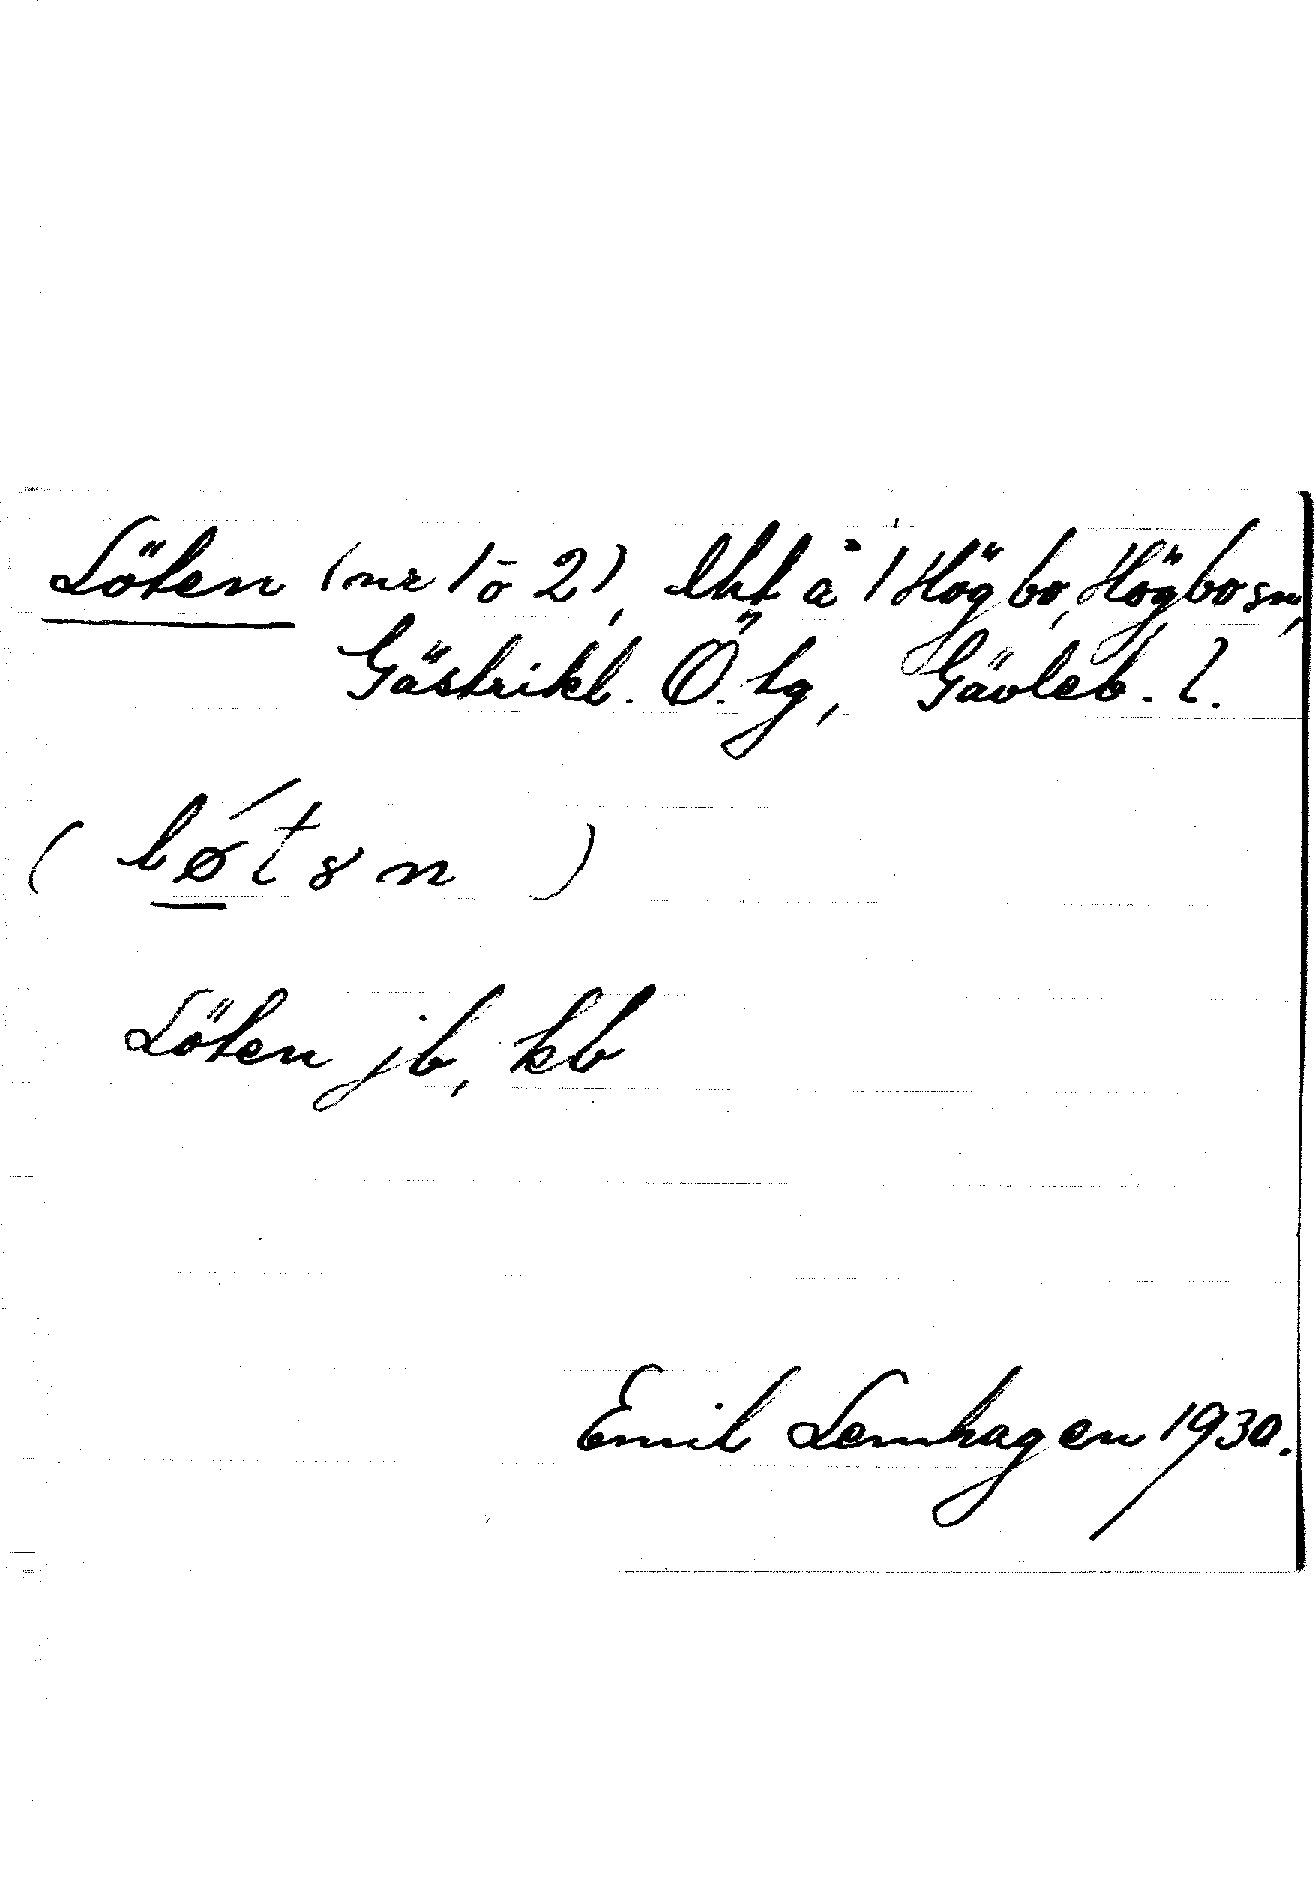 Löten (nr 1 o 2), lht å 1 Högbo, Högbo sn,
Gästrikl. Ö. tg, Gävleb. l.
( lǿtən )
Löten jb, kb
Emil Lennhagen 1930.